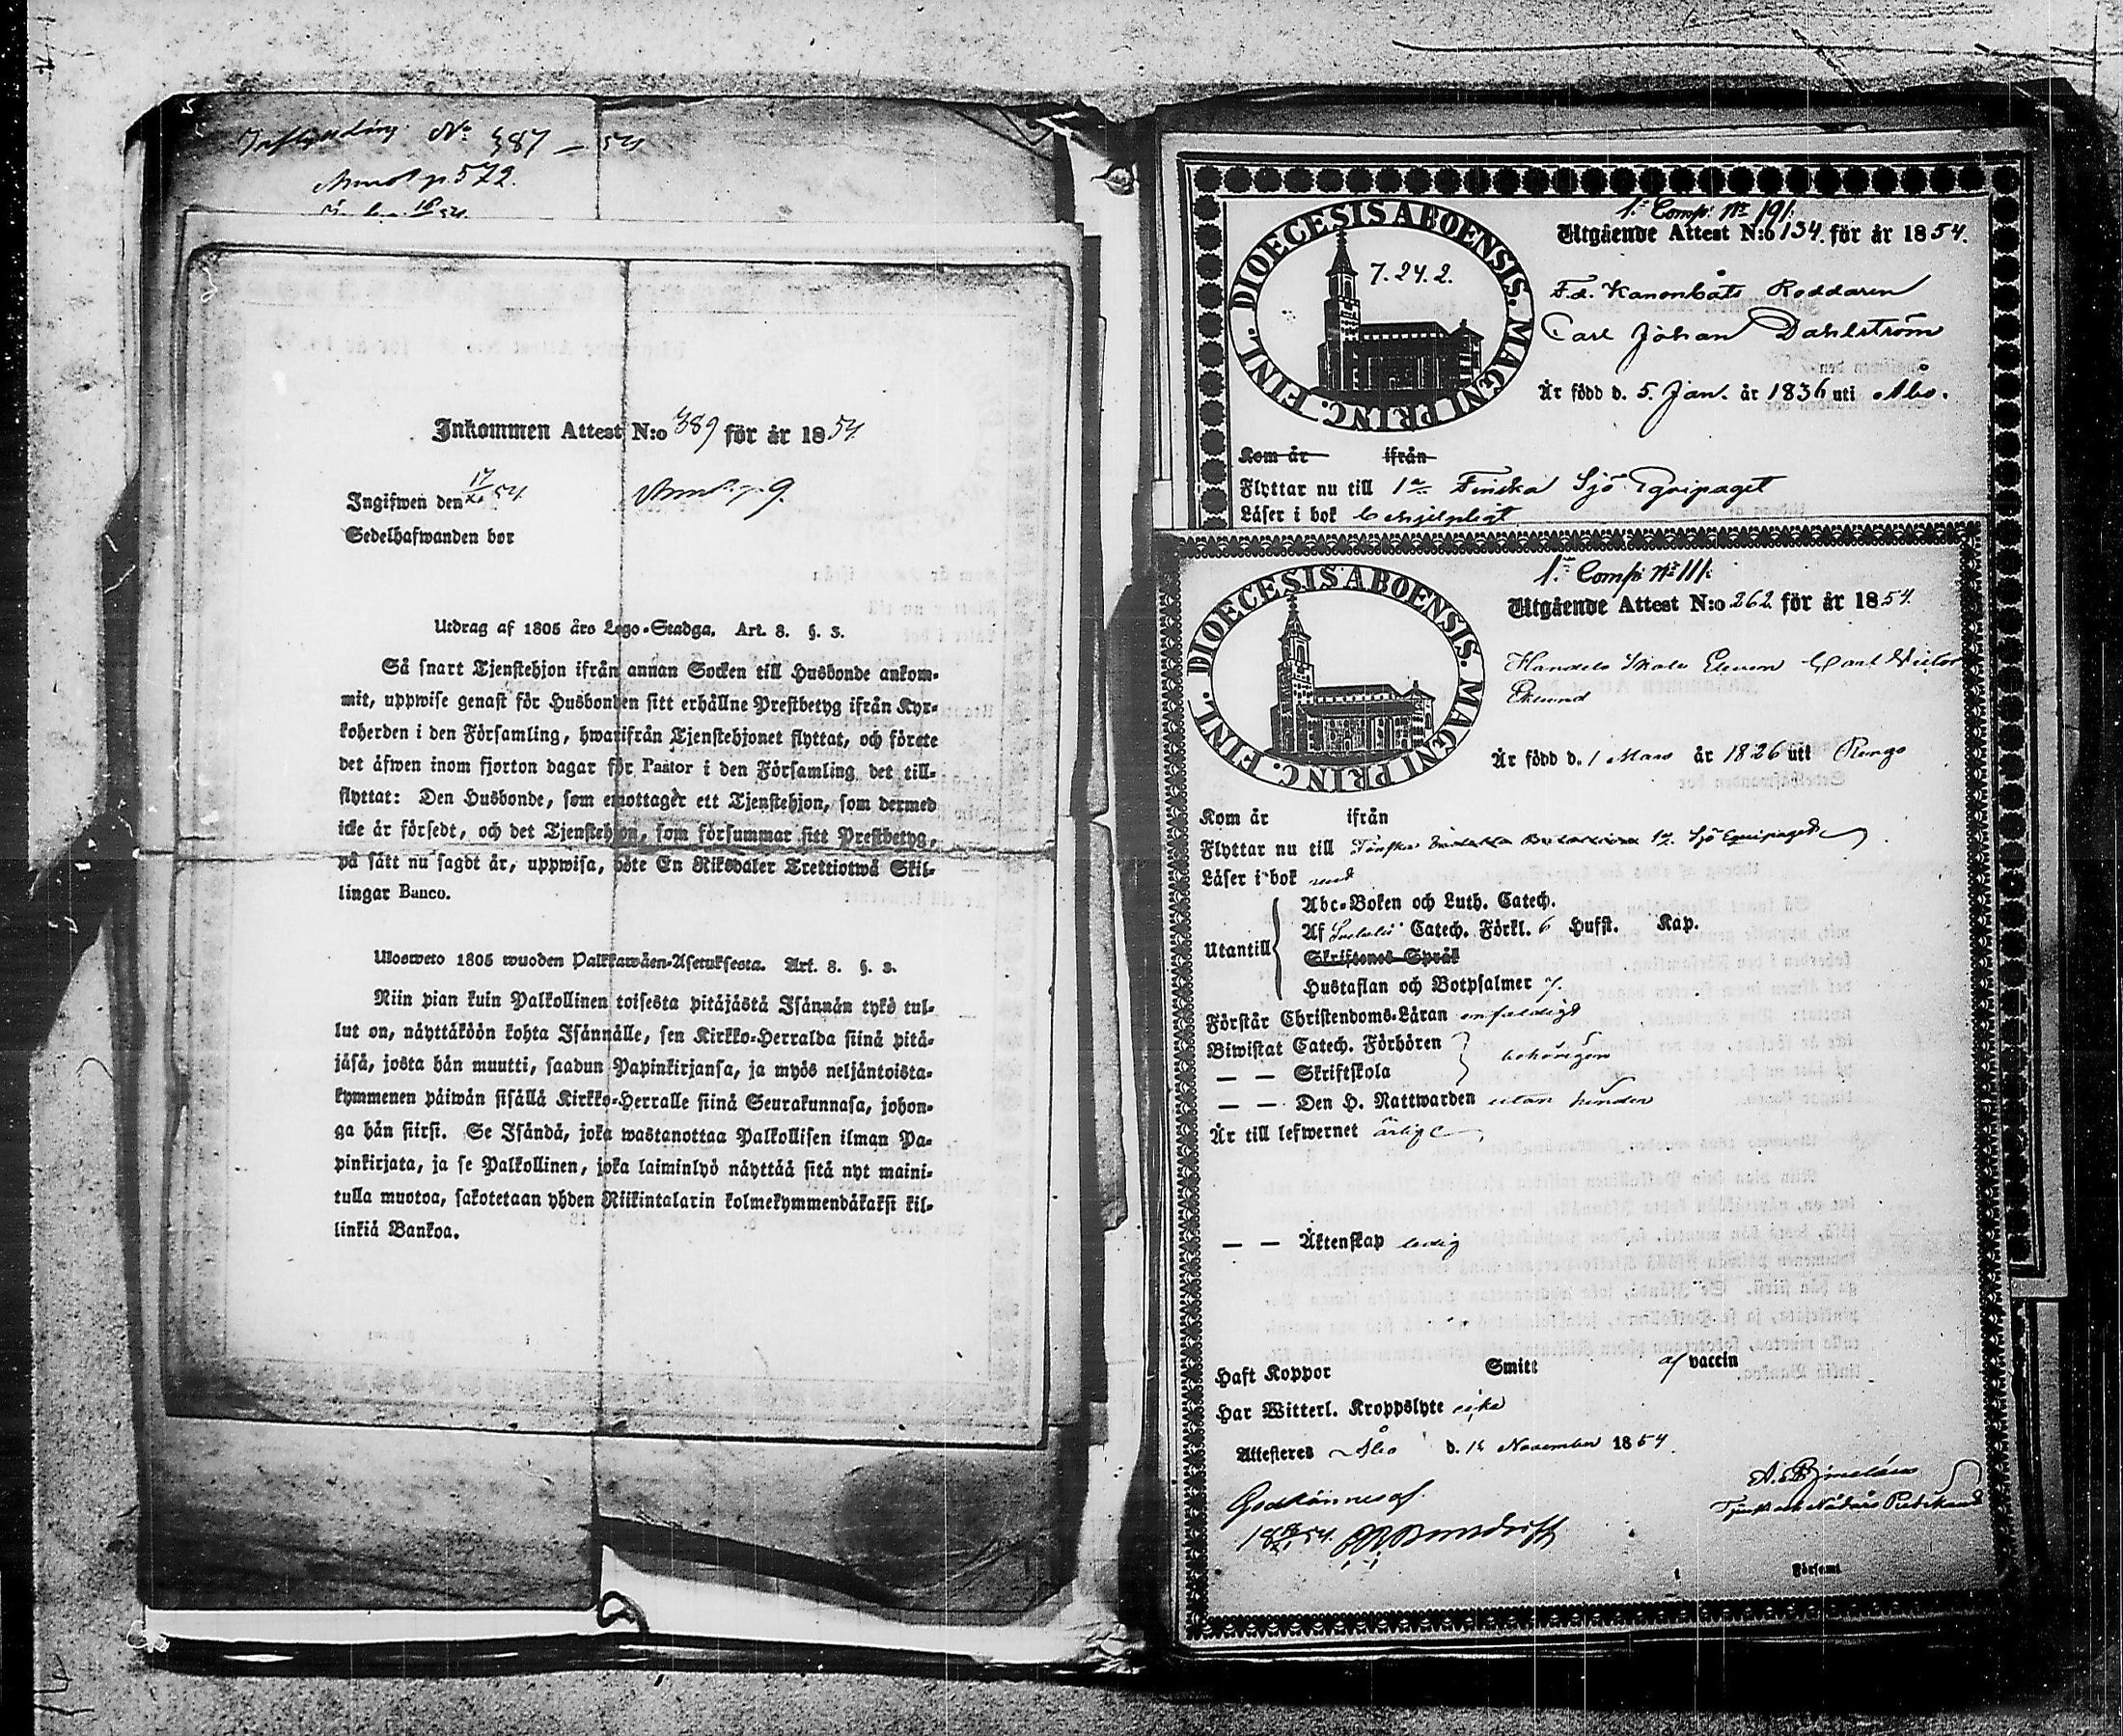 Inflyttning No 387 – 54
p. 572.
Inkommen Attest N:o 389 för år 1854.
Ingifwen den 17/XI 54. p. 9.
Sedelhafwanden bor
Utdrag af 1805 års Lego-Stadga. Art. 8. §. 3.
Så snart Tjenstehjon ifrån annan Socken till Husbonde ankom-
mit, uppwise genast för Husbonden sitt erhållne Prestbetyg ifrån Kyr-
koherden i den Församling, hwarifrån Tjenstehjonet flyttat, och förete
det äfwen inom fjorton dagar för Pastor i den Församling det till-
flyttat: Den Husbonde, som emottager ett Tjenstehjon, som dermed
icke är försedt, och det Tjenstehjon, som försummar sitt Prestbetyg,
på sätt nu sagdt är, uppwisa, böte En Riksdaler Trettiotwå Skil-
lingar Banco.
Ulosweto 1805 wuoden Palkkawäen-Asetuksesta. Art. 8. §. 3.
Niin pian kuin Palkollinen toisesta pitäjästä Isännän tykö tul-
lut on, näyttäköön kohta Isännälle, sen Kirkko-Herralda siinä pitä-
jäsä, josta hän muutti, saadun Papinkirjansa, ja myös neljäntoista-
kymmenen päiwän sisällä Kirkko-Herralle siinä Seurakunnasa, johon-
ga hän siirsi. Se Isändä, joka wastanottaa Palkollisen ilman Pa-
pinkirjata, ja se Palkollinen, joka laiminlyö näyttää sitä nyt maini-
tulla muotoa, sakotetaan yhden Riikintalarin kolmekymmendäkaksi kil-
linkiä Bankoa.
DIOECESIS ABOENSIS. MAGNI PRINC. FINL.
7. 24. 2.
1:a Comp: No 191.
Utgående Attest N:o 134. för år 1854.
F.d. Kanonbåts Roddaren
Carl Johan Dahlström
Är född d. 5. Jan. år 1836 uti Åbo.
Kom år ifrån
Flyttar nu till 1a Finska Sjö Eqvipaget
Läser i bok behjelpligt
DIOECESIS ABOENSIS. MAGNI PRINC. FINL.
1:a Comp: No 111.
Utgående Attest N:o 262 för år 1854.
Handels Skole Eleven Carl Victor
Eklund
Är född d. 1 Mars år 1826 uti Pungo
Kom år ifrån
Flyttar nu till Finska 1a Sjö Equipaget
Läser i bok rent
Abc-Boken och Luth. Catech.
Af Catech. Förkl. 6 Hufst. Kap.
Utantill
Skriftenes Språk
Hustaflan och Botpsalmer 7.
Förstår Christendoms-Läran enfaldigt
Biwistat Catech. Förhören
behörigen
— — Skriftskola
— — Den H. Nattwarden utan hinder
Är till lefwernet ärlig
— — Äktenskap ledig
Haft Koppor Smitt af vaccin
Har Witterl. Kroppslyte icke
Attesteras Åbo d. 15 November 1854.
Godkännes af.
Församl